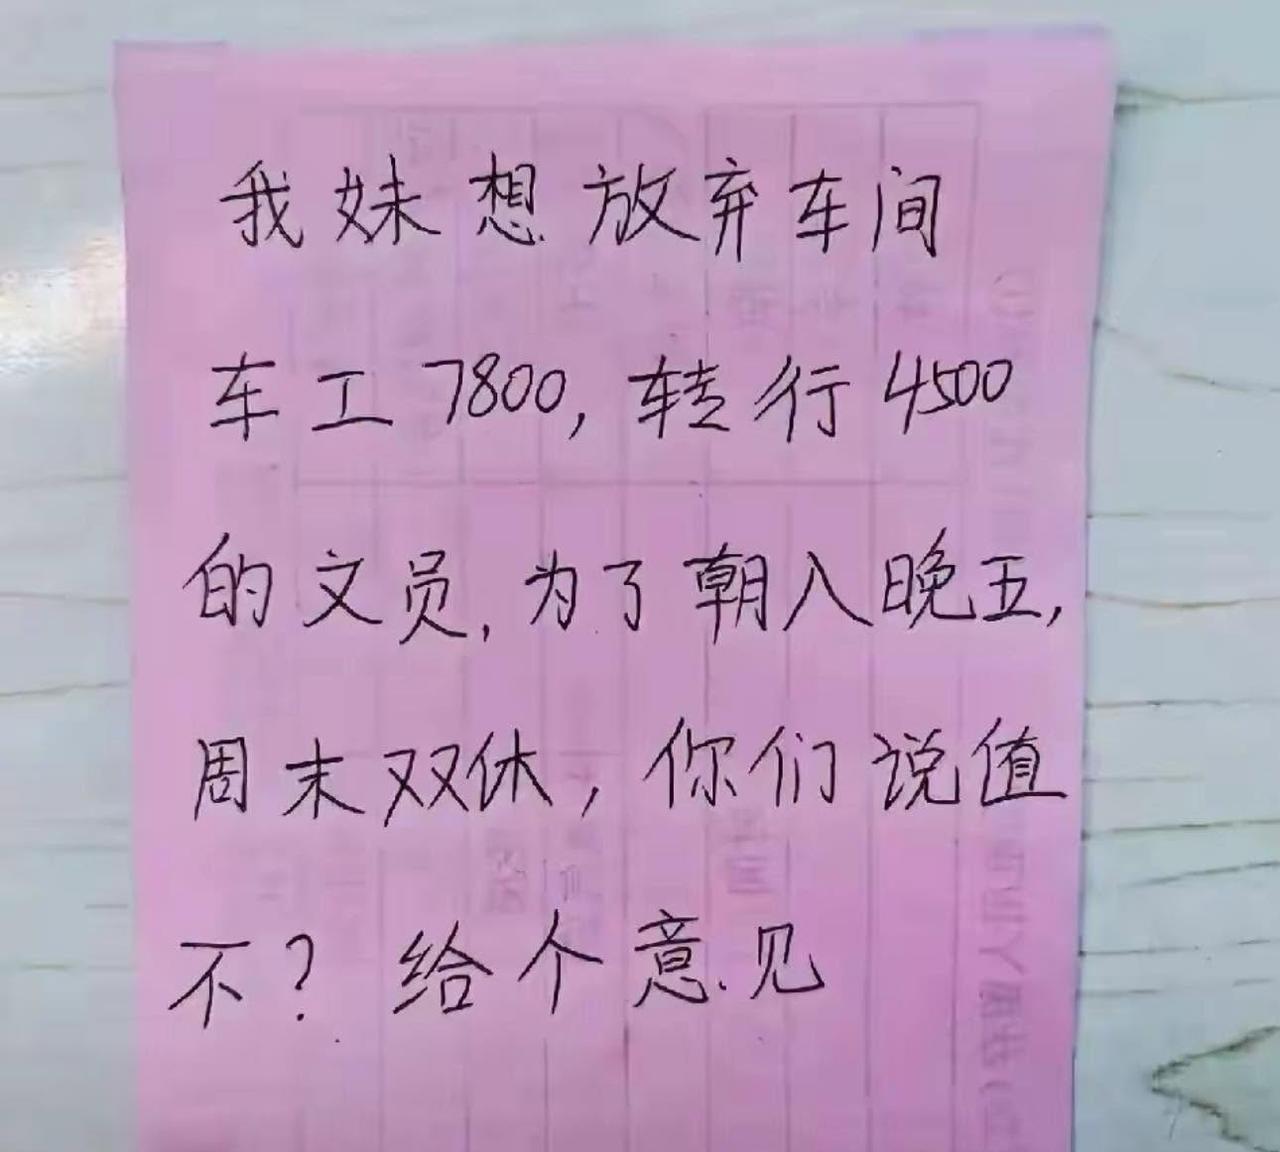 我妹想放弃车间
车工7800,转行4500
的文员,为了朝入晚五,
周末双休,你们说值
不?给个意见